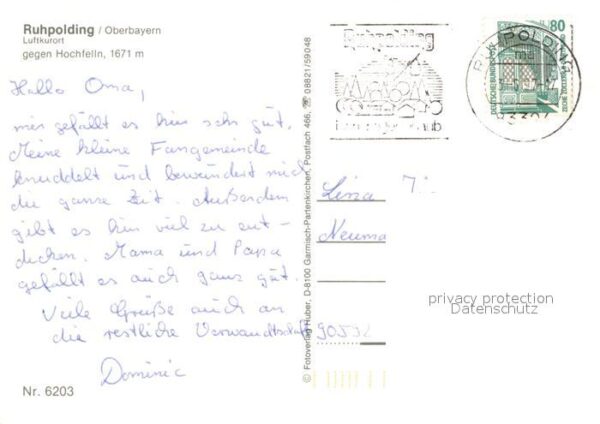 Ruhpolding / Oberbayern
Luftkurort
gegen Hochfelln, 1671 m
Hallo Oma,
mir gefällt es hier sehr gut.
Meine kleine Fangemeinde
knuddelt und bewundert mich
die ganze Zeit. Außerdem
gibt es hier viel zu ent-
decken. Mama und Papa
gefällt es auch ganz gut.
Viele Grüße auch an
die restliche Verwandtschaft
Dominic
Nr. 6203
© Fotoverlag Huber, D-8100 Garmisch-Partenkirchen, Postfach 466, ☏ 08821/59048
Ruhpolding
RUHPOLDING
80
DEUTSCHE BUNDESPOST
ZECHE ZOLLERN
Neuma
90532
privacy protection
Datenschutz